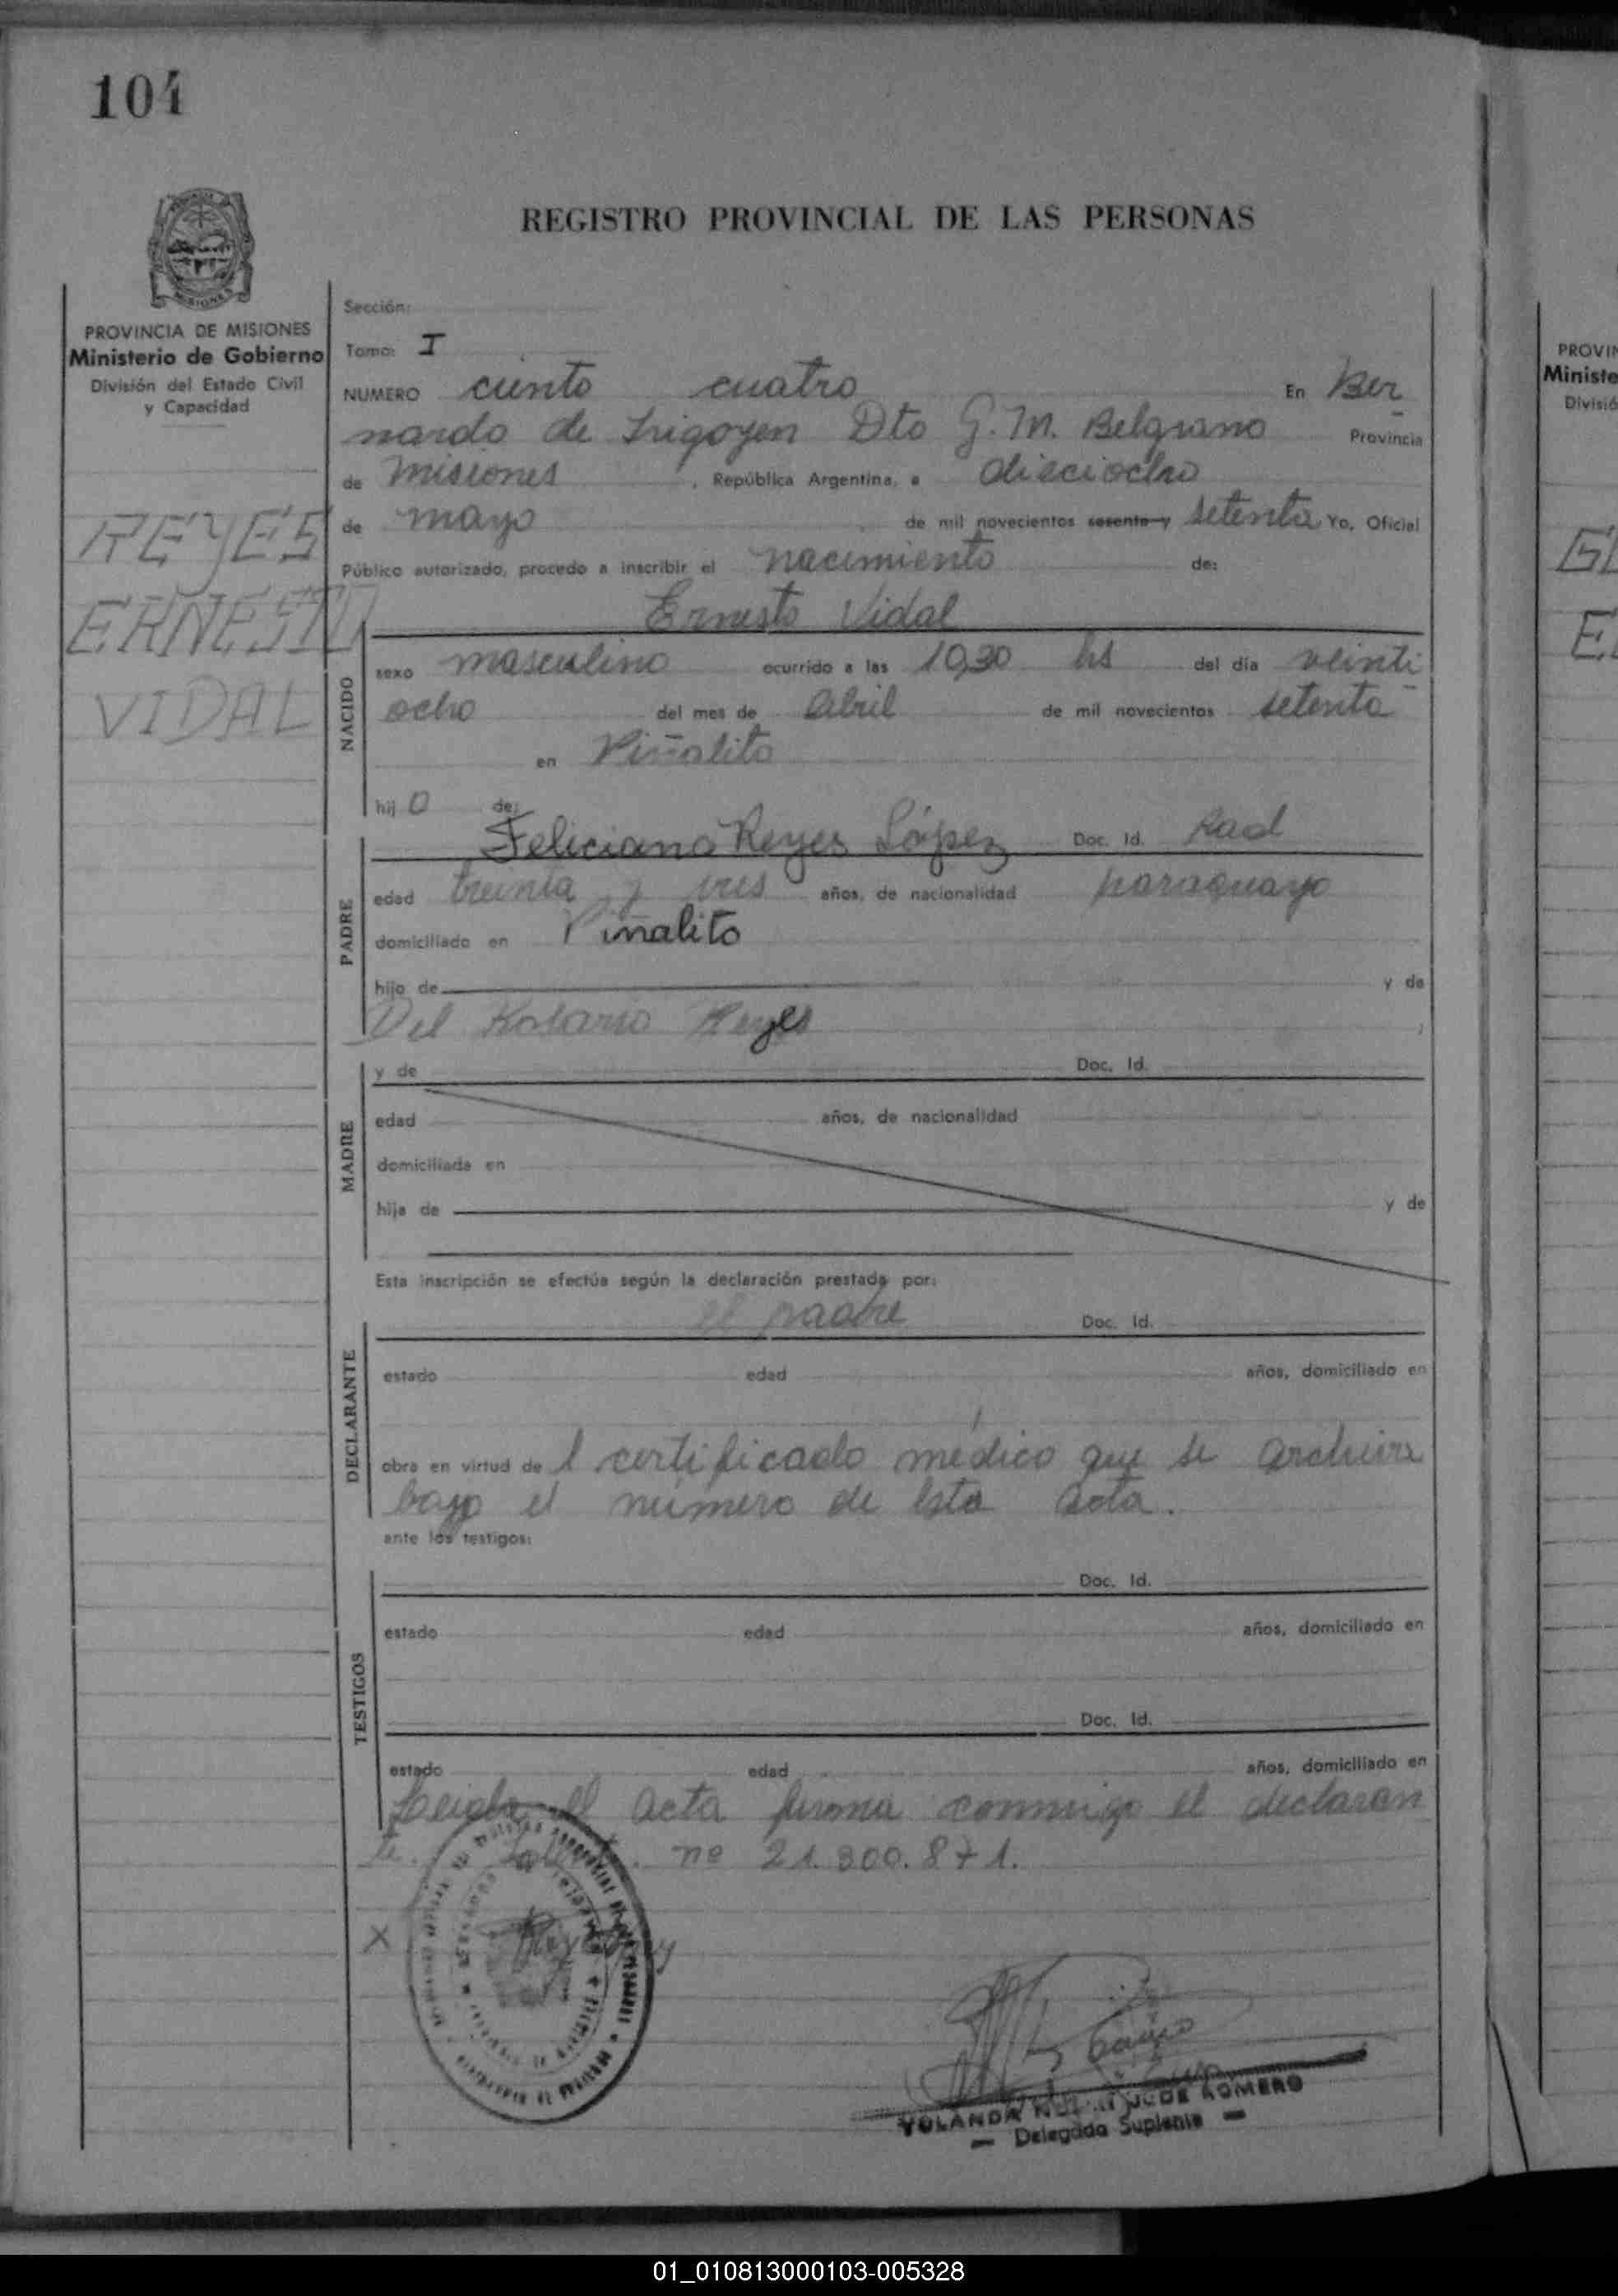 104
REGISTRO PROVINCIAL DE LAS PERSONAS
PROVINCIA DE MISIONES
Ministerio de Gobierno
División del Estado Civil
y Capacidad
REYES
ERNESTO
VIDAL
Sección:
Tomo: I
NUMERO ciento cuatro En Ber
nardo de Irigoyen Dto G. M. Belgrano Provincia
de Misiones, República Argentina, a dieciocho
de mayo de mil novecientos sesenta y setenta Yo, Oficial
Público autorizado, procedo a inscribir el nacimiento de:
Ernesto Vidal
NACIDO
sexo masculino ocurrido a las 10,30 hs del día veinti
ocho del mes de Abril de mil novecientos setenta
en Piñalito
hij o de:
Feliciano Reyes López Doc. Id. Rad
PADRE
edad treinta y tres años, de nacionalidad paraguayo
domiciliado en Piñalito
hijo de y de
Del Rosario Reyes
MADRE
y de Doc. Id.
edad años, de nacionalidad
domiciliada en
hija de y de
Esta inscripción se efectúa según la declaración prestada por:
el padre Doc. Id.
DECLARANTE
estado edad años, domiciliado en
obra en virtud de l certificado médico que se archiva
bajo el número de esta acta.
ante los testigos:
TESTIGOS
Doc. Id.
estado edad años, domiciliado en
Doc. Id.
estado edad años, domiciliado en
Leida el acta firma conmigo el declaran
te. nº 21.300.871.
X
YOLANDA DE ROMERO
— Delegada Suplente —
PROVIN
Ministe
Divisió
01_010813000103-005328